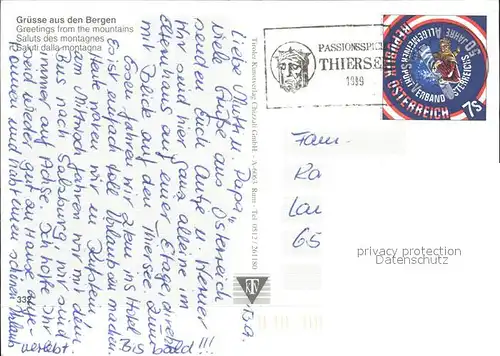 Grüsse aus den Bergen
Greetings from the mountains
Saluts des montagnes
Saluti dalla montagna
Liebe Mutti u. Papa,
viele Grüße aus Österreich
senden Euch Antje u. Werner
Wir sind hier ganz alleine im
auf einer Etage, direkt
Blick auf den Thiersee. Zum
Essen fahren wir ins Hotel.
Urlaub machen.
Heute waren wir in Kufstein
am Mittwoch fahren wir mit dem
Bus nach Salzburg. Wir sind
immer auf Achse. Ich hoffe Ihr
seid wieder gut zu Hause ange-
kommen und habt einen schönen Urlaub
verlebt.
Bis bald!!!
332
Tiroler Kunstverlag Chizzali GmbH. - A-6063 Rum - Tel 0512 / 261180
PASSIONSSPIEL
THIERSEE
1999
REPUBLIK ÖSTERREICH
50 JAHRE ALLGEMEINER SPORTVERBAND ÖSTERREICHS
7S
Fam.
Ka
Lau
65
privacy protection
Datenschutz